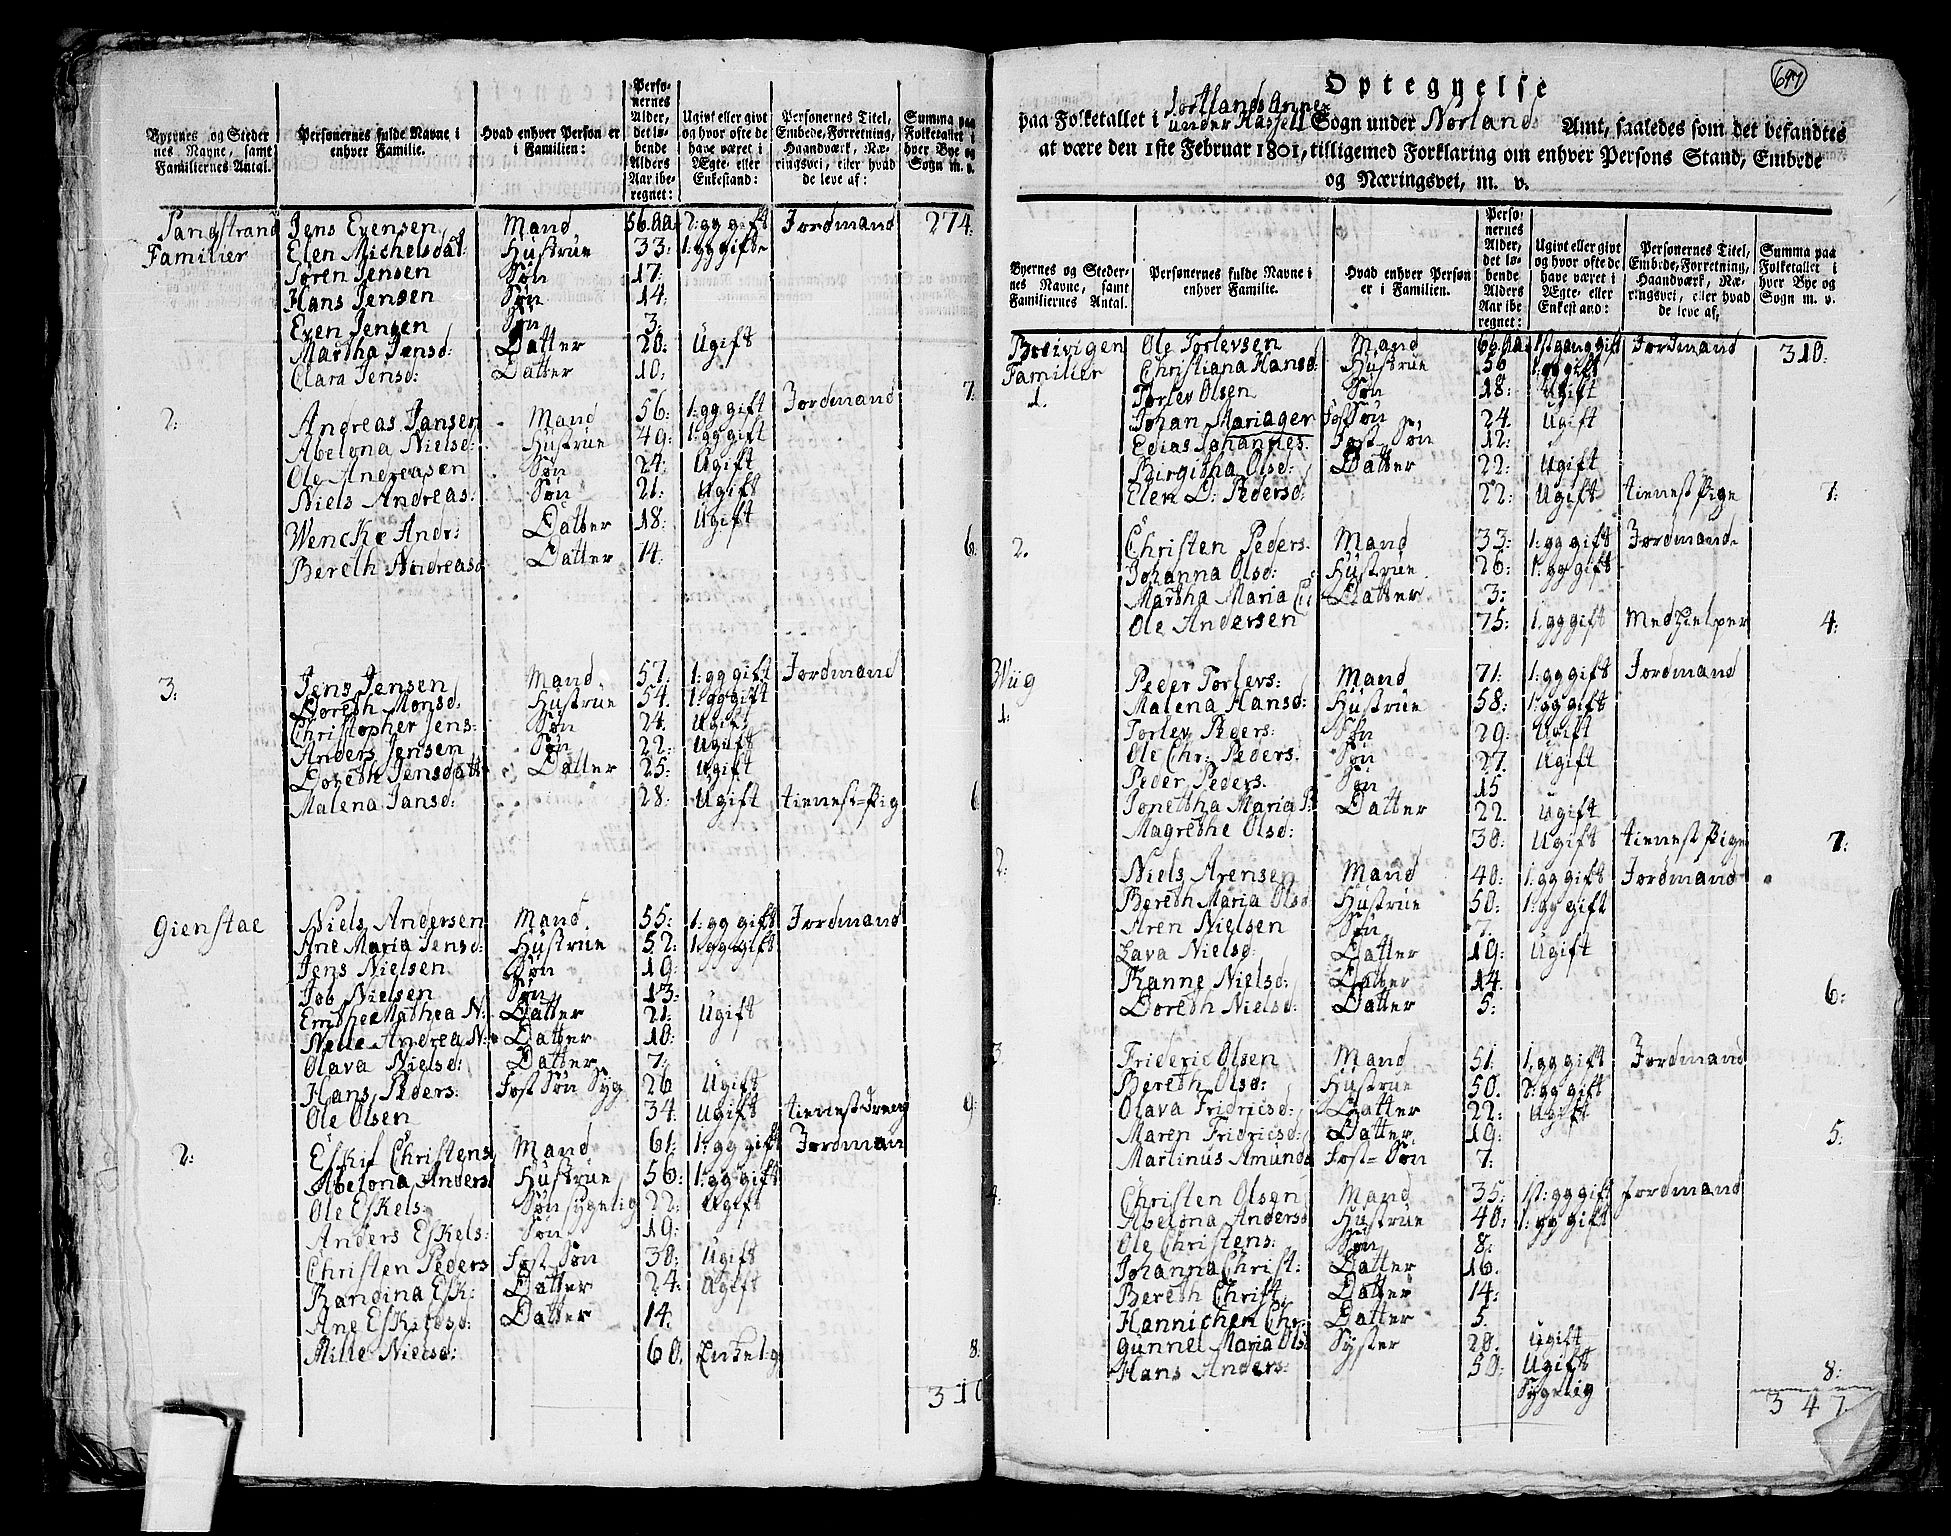 Byernes og Steder Personernes fulde Navne i Hvad enhver Person er Perso- Ugivt eller givt Personernes Titel, Summa paa
nes Navne, samt enhver Familie. i Familien: nernes og hvor ofte de Embede, Forretning, Folketallet i
Familiernes Antal. Alder, have været i Haandværk, Næ- hver Bye og
det lø- Ægte- eller ringsvei, eller hvad Sogn m. v.
bende Enkestand: de leve af:
Alders
Aar ibe-
regnet:
Sandstrand Jens Evensen Mand 56 Aar 2: gg gift Jordmand 274.
Familier Elen Michelsdat: Hustrue 33: 1: gg gift
Søren Jensen Søn 17:
Hans Jensen Søn 14:
Even Jensen Søn 3:
Martha Jensd: Datter 20: Ugift
Clara Jensd: Datter 10: 7:
2: Andreas Jansen Mand 56: 1: gg gift Jordmand
Abelona Nielsd: Hustrue 49: 1: gg gift
Ole Andreasen Søn 24: Ugift
Niels Andreas: Søn 21: Ugift
Wencke Andr: Datter 18: Ugift
Bereth Andreasd Datter 14: 6:
3: Jens Jensen Mand 57: 1: gg gift Jordmand
Doreth Monsd: Hustrue 54: 1: gg gift
Christopher Jens: Søn 24: Ugift
Anders Jensen Søn 22: Ugift
Doreth Jensdatt Datter 25: Ugift
Malena Jansd: 28: Ugift tienest=Pig 6
Gienstae Niels Andersen Mand 55: 1: gg gift Jordmand
Ane Maria Jensd: Hustrue 52: 1: gg gift
Jens Nielsen Søn 19:
Job Nielsen Søn 13:
Mathea N: Datter 21: Ugift
Nelle Andrea N: Datter 10:
Olava Nielsd: Datter 7:
Hans Peders: Fost Søn Syg 26 Ugift
Ole Olsen 34: Ugift tienestdreng 9:
2: Eskil Christens Mand 61: 1: gg gift Jordman
Abelona Andersd Hustrue 56: 1: gg gift
Ole Eskels: Søn sygelig 22: Ugift
Anders Eskels: Søn 19:
Christen Peders Fost Søn 30: Ugift
Randina Esk: Datter 24: Ugift
Ane Eskildsd: Datter 14:
Mille Nielsd: 60. Enke 8:
310
697
Optegnelse
paa Folketallet i Jortlands Annex under Hassell Sogn under Norland Amt, saaledes som det befandtes
at være den 1ste Februar 1801, tilligemed Forklaring om enhver Persons Stand, Embede
og Næringsvei, m. v.
Byernes og Steder- Personernes fulde Navne i Hvad enhver Person Perso- Ugivt eller givt Personernes Titel, Summa paa
nes Navne, samt enhver Familie. er i Familien. nernes og hvor ofte de Embede, Forretning, Folketallet i
Familiernes Antal. Alder, have været i Haandværk, Næ- hver Bye og
det lø- Ægte- eller ringsvei, eller hvad Sogn m. v.
bende Enkestand: de leve af,
Alders
Aar ibe-
regnet:
Brevigen Ole Torlevsen Mand 66 Aar 1st gang gift Jordmand 310:
Familier Christiana Hansd: Hustrue 56 1: gg gift
1. Torlev Olsen Søn 18: Ugift
Johan Mariager Fost Søn 24. Ugift
Johannes. Fost=Søn 12:
Birgitha Olsd: Datter 22: Ugift
Elen D: Pedersd: 22: Ugift tienest Pige 7:
2. Christen Peders. Mand 33: 1: gg gift Jordmand.
Johanna Olsd: Hustrue 26: 1: gg gift
Martha Maria Datter 3:
Ole Andersen 75: 1: gg gift Medhielper 4:
Wiig Peder Torlevs: Mand 71: 1: gg gift Jordmand
1: Malena Hansd: Hustrue 58: 1: gg gift
Torlev Peders: Søn 29: Ugift
Ole Chr: Peders. Søn 27. Ugift
Peder Peders. Søn 15
Jonettha Maria P: Datter 22. Ugift
Magrethe Olsd: 30: Ugift tienest Pige 7:
2: Niels Arensen Mand 40: 1: gg gift Jordmand
Bereth Maria Olsd Hustrue 50: 1: gg gift
Aren Nielsen Søn 7.
Lava Nielsd: Datter 19: Ugift
Ranne Nielsd: Datter 14:
Doreth Nielsd: Datter 5: 6:
3. Frideric Olsen Mand 51: 1. gg gift Jordmand
Bereth Olsd: Hustrue 50. 2: gg gift
Olava Fridricsd: Datter 22: Ugift
Maren Fridricsd: Datter 19:
Martinus Amunds Fost=Søn 7: 5:
4: Christen Olsen Mand 35: 1st: gg gift Jordmand
Abelona Andersd Hustrue 40: 1: gg gift
Ole Christens: Søn 8:
Johanna Christ: Datter 16.
Bereth Christ Datter 14:
Hannichen Chr: Datter 5.
Gunnel Maria Olsd Syster 20. Ugift
Hans Anders: 50: Ugift
Sygelig 8:
347